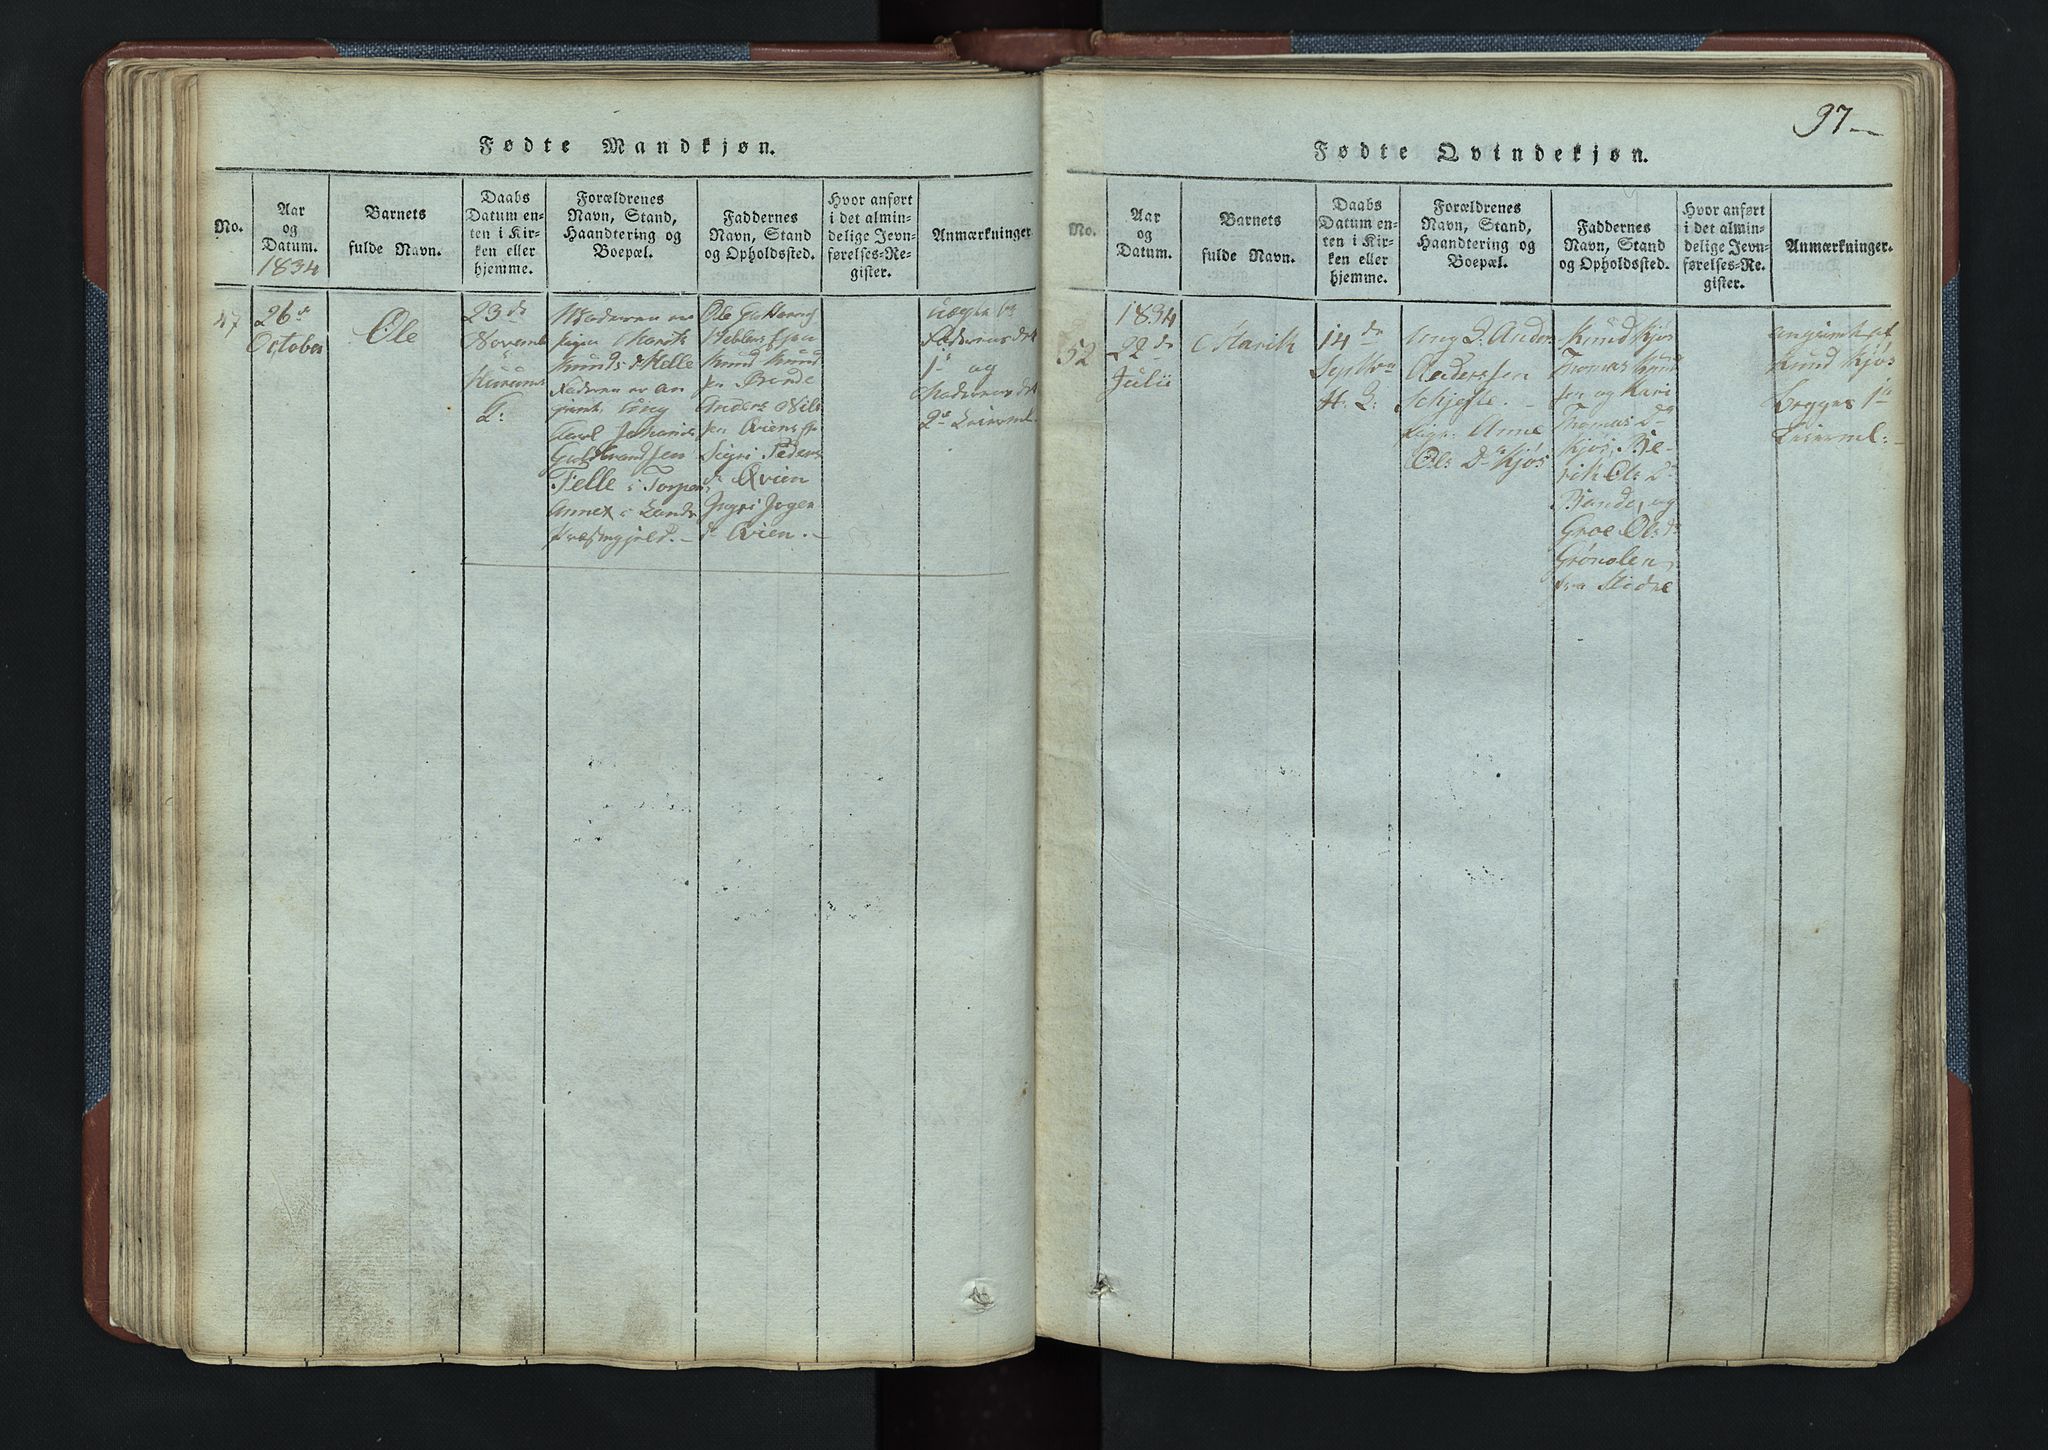 97
Fødte Mandkjøn.
No.
Aar
og
Datum.
1834
Barnets
fulde Navn.
Daabs
Datum en-
ten i Kir-
ken eller
hjemme.
Forældrenes
Navn, Stand,
Haandtering og
Boepæl.
Faddernes
Navn, Stand
og Opholdssted.
Hvor anført
i det almin-
delige Jevn-
førelses-Re-
gister.
Anmærkninger
47
26de
October
Ole
23de
Novemb
Moderen er
Knuds d Helle
Faderen er an
Guldbrandsen
Telle i Torpen
Annex i Lands
Præstegjeld.
Ole
Knud Knud
sen
Anders Nils
sen
Sigri Peders
d Qvien
d Qvien.
Faderens
1 og
Moderens
2 Leierml.
Fødte Qvindekjøn.
No.
Aar
og
Datum.
Barnets
fulde Navn.
Daabs
Datum en-
ten i Kir-
ken eller
hjemme.
Forældrenes
Navn, Stand,
Haandtering og
Boepæl.
Faddernes
Navn, Stand
og Opholdssted.
Hvor anført
i det almin-
delige Jevn-
førelses-Re-
gister.
Anmærkninger.
52
1834
22de
Julii
Marit
14de
Anderssen
Anne
Ols D Kjøs
Knud Kjøs
Thomas Knud
sen og Kari
Thomas D
Kjøs, Be-
rit Ols D
og
Groe Ols d
Grønolen
fra Slidre
angivet af
Knud Kjøs
Begges 1ste
Leierml: